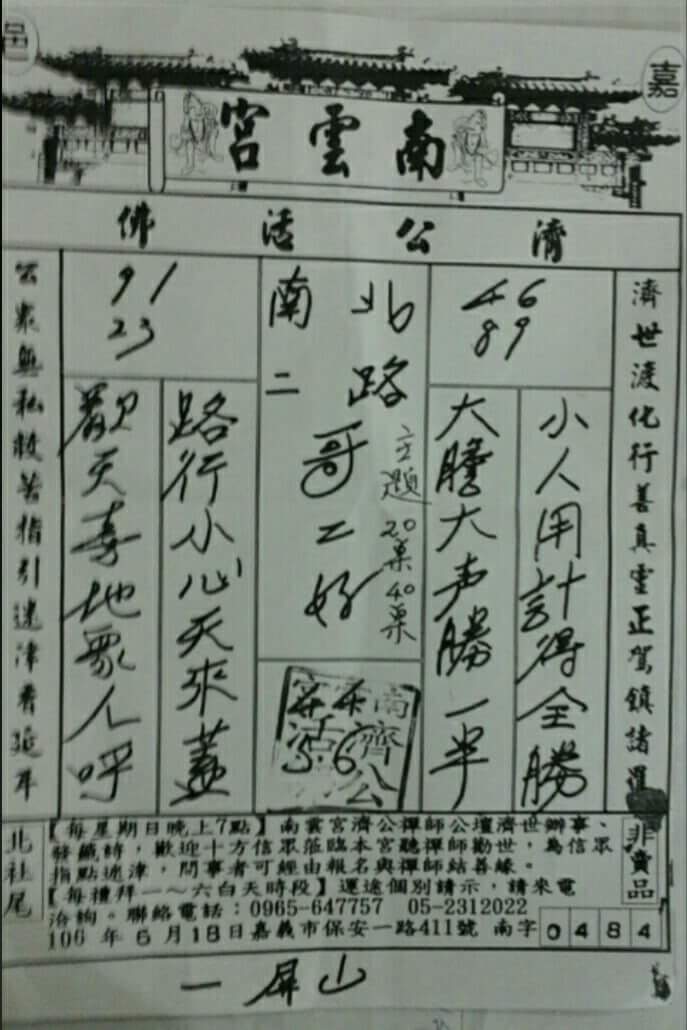 嘉
邑
南雲宮
濟公活佛
濟世渡化行善真靈正駕鎮諸羅
46
89
小人用計得全勝
大膽大声勝一半
北路
主題
20票40票
哥二好
南二
56
91
23
路行小心天來蓋
歡天喜地眾人呼
公眾無私救苦指引迷津看延年
非賣品
【每星期日晚上7點】南雲宮濟公禪師公壇濟世辦事、
發籤詩，歡迎十方信眾蒞臨本宮聽禪師勸世，為信眾
指點迷津，問事者可經由報名與禪師結善緣。
【每禮拜一～六白天時段】運途個別請示，請來電
洽詢。聯絡電話：0965-647757 05-2312022
106 年 6 月 18 日嘉義市保安一路411號 南字 0484
北社尾
一屏山